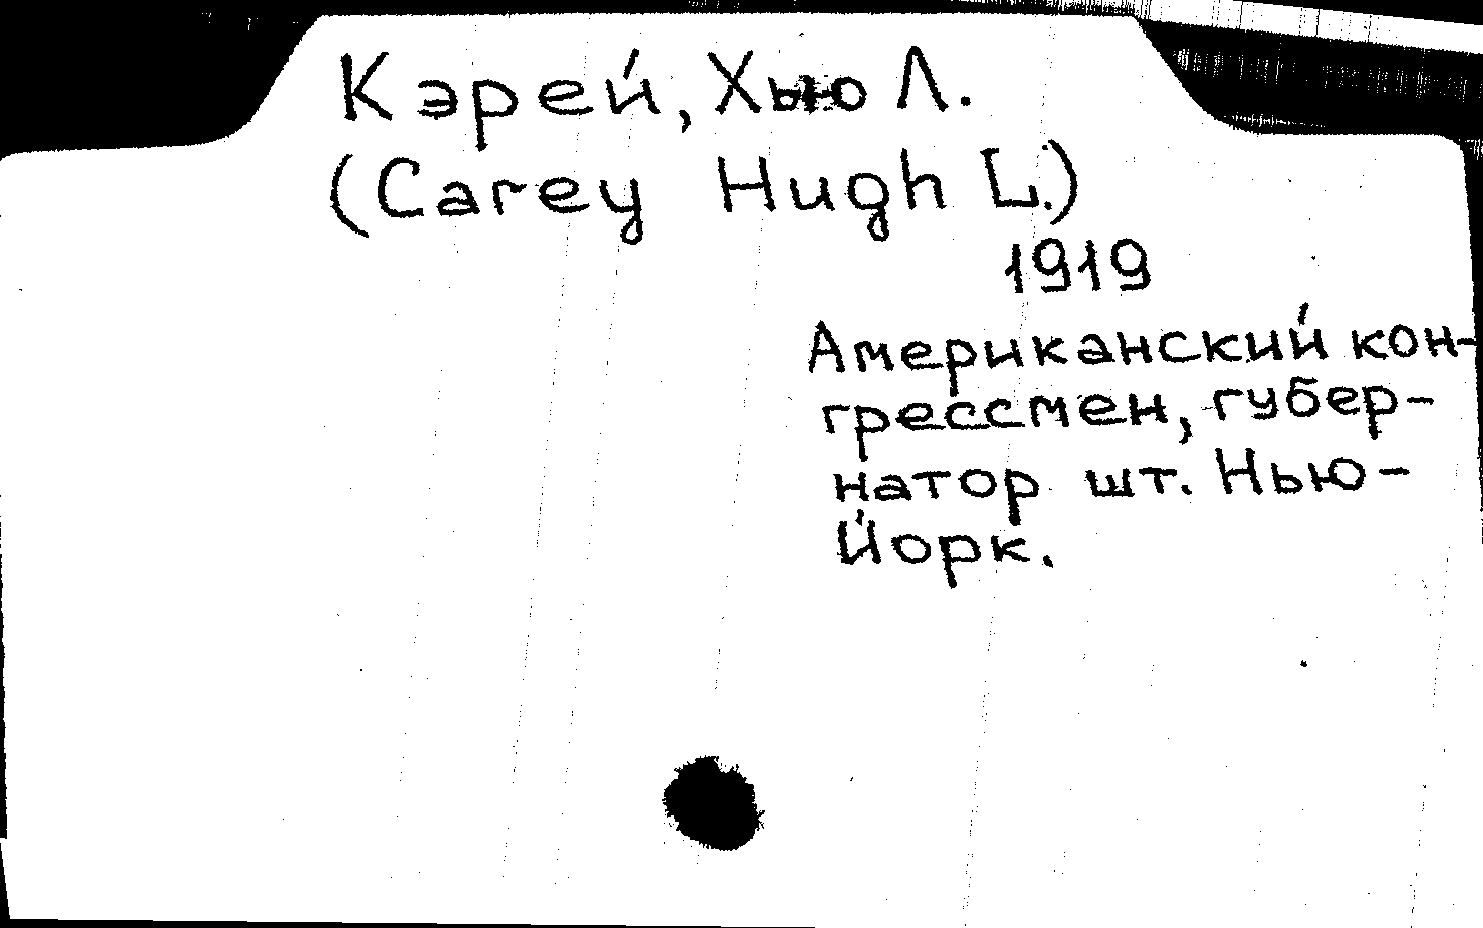 Кэрей, Хью Л.
(Carey Hugh L.)
1919
Американский кон-
грессмен, губер-
натор шт. Нью-
Йорк.